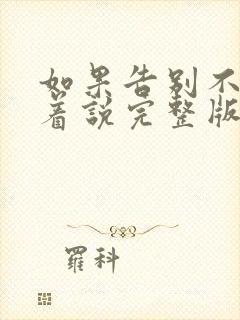 如果告别不
着说完整版
羅科